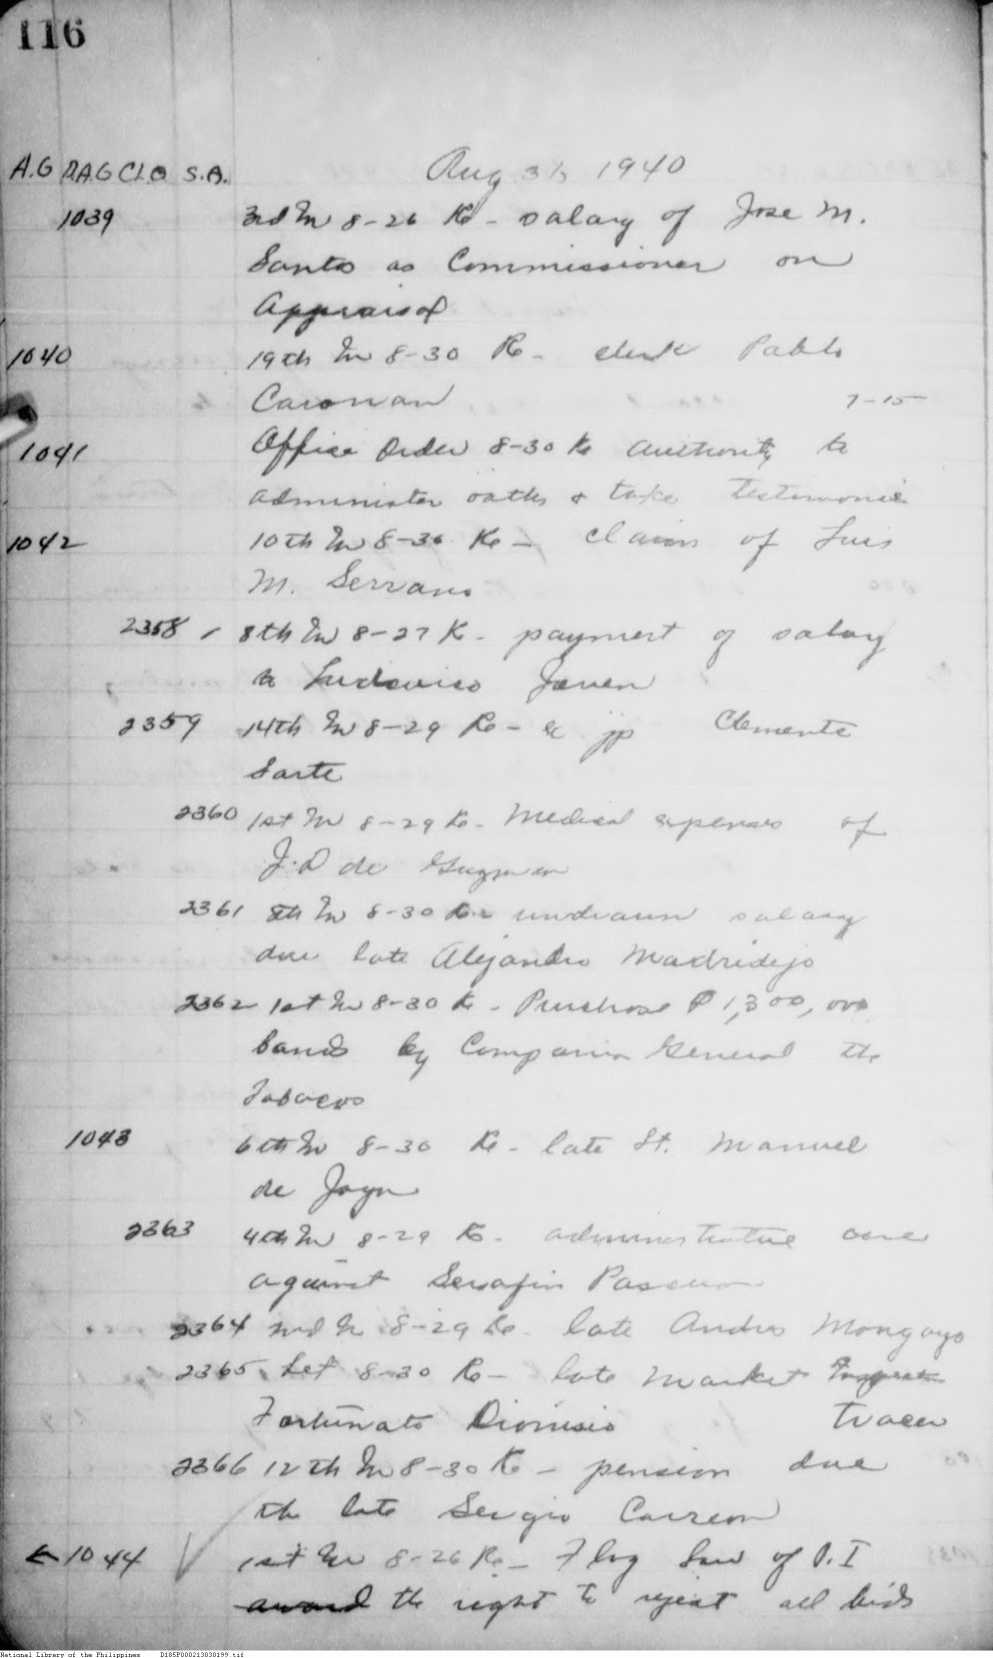 116
A.G D.A.G C.L.O S.A.
Aug 31, 1940
1039 3rd In 8-26 Re - salary of Jose M.
Santos as Commissioner on
Appraisal
1040 19th In 8-30 Re - clerk Pablo
Caronan 7-15
1041 Office Order 8-30 Re authority to
administer oaths & take testimonie
1042 10th In 8-30 Re - claim of Luis
M. Serrano
2358 8th In 8-27 Re - payment of salary
to Ludovico Joven
2359 14th In 8-29 Re - jp Clemente
Sarte
2360 1st In 8-29 Re - Medical expenses of
J. D de Guzman
2361 8th In 8-30 Re undrawn salary
due late Alejandro Madridejo
2362 1st In 8-30 Re - Purchase ₱ 1,300,000
bonds by Compania General de
Tabacos
1043 6th In 8-30 Re - late St. Manuel
de
2363 4th In 8-29 Re - administrative case
against Serafin Pascua
2364 2nd In 8-29 Re - late Andres Mongayo
2365 Let 8-30 Re - late Market
Fortunato Dionisio
2366 12th In 8-30 Re - pension due
the late Sergio Carreon
← 1044 1st In 8-26 Re - Flag Law of P. I
award the right to reject all bids
National Library of the Philippines D185P000213030199.tif